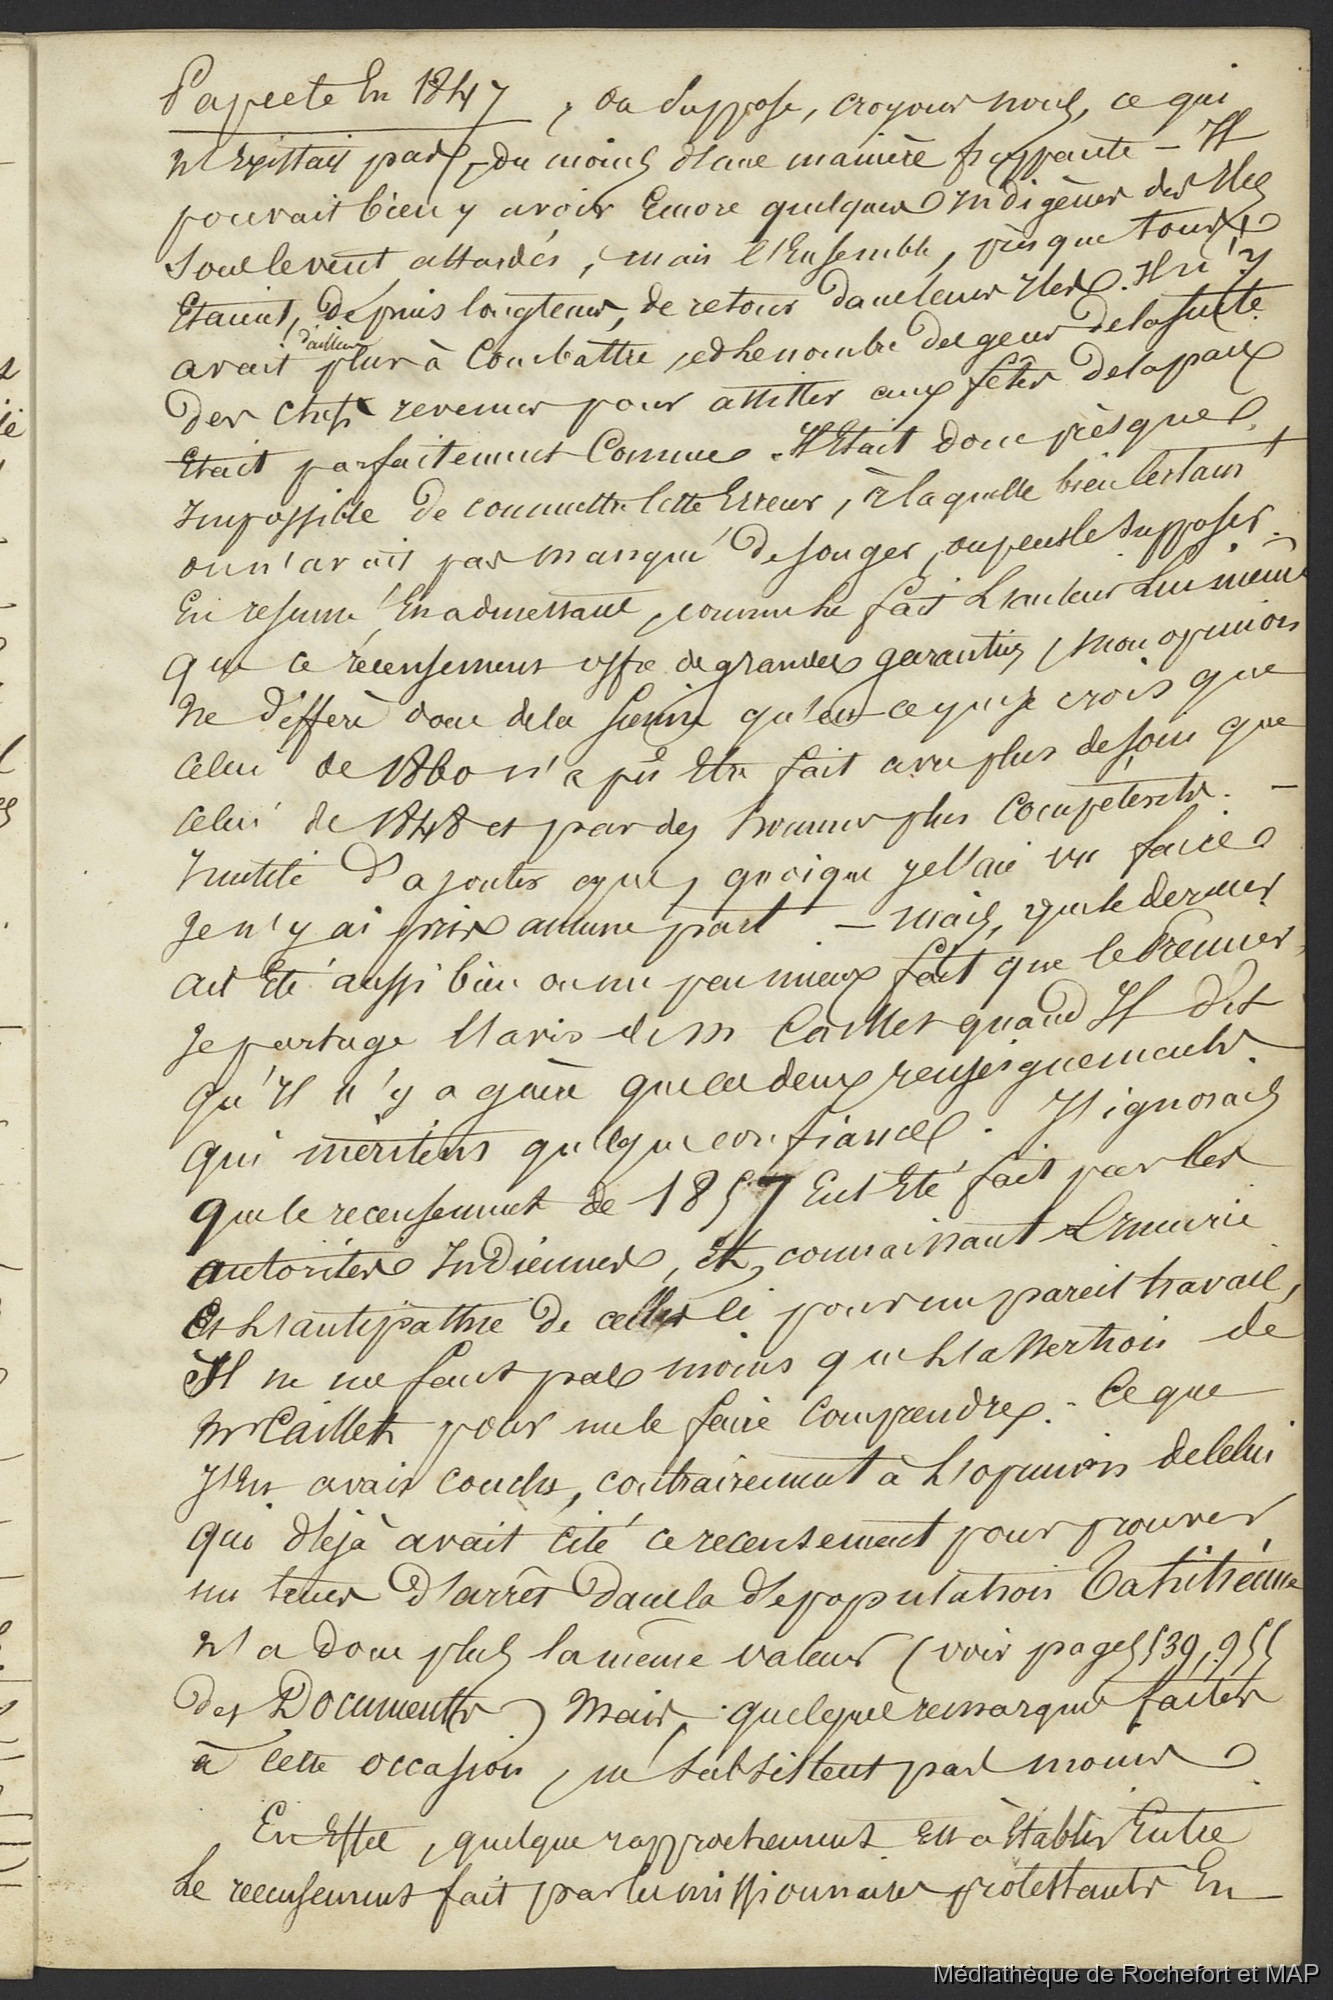 Papeete En 1847, on suppose, croyons nous, ce qui
n'existait pas, du moins d'une manière frappante – Il
pouvait bien y avoir Encore quelques Indigènes des Iles
sous le vent attardés, mais l'Ensemble, presque tous,
Etaient, depuis longtems, de retour dans leurs Iles. Il n'y
avait d'ailleurs plus à Combattre, et le nombre des gens de la suite
des chefs revenus pour assister aux fêtes de la paix
Etait parfaitement Connue. Il Etait donc presque
Impossible de commettre cette Erreur, à laquelle bien certains
on n'avait pas manqué de songer, on peut le supposer.
En résumé, En admettant, comme le fait L'auteur Lui même
que ce récensement offre de grandes garanties, mon opinion
ne diffère donc de la sienne qu'en ce que je crois que
celui de 1860 n'a pu Etre fait avec plus de soin que
celui de 1848 et par des hommes plus Compétents. –
Inutile d'ajouter que, quoique je l'aie vu faire
Je n'y ai pris aucune part – mais, que le dernier
ait Eté aussi bien ou un peu mieux fait que le Premier,
Je partage l'avis de M Caillet quand Il dit
qu'Il n'y a guère que ces deux renseignements
qui méritent quelque confiance. J'ignorais
que le recensement de 1857 Eut Eté fait par les
autorités Indiennes, Et, connaissant L'incurie
Et L'antipathie de celles ci pour un pareil travail,
Il ne me faut pas moins que L'assertion de
Mr Caillet pour me le faire Comprendre. – Ce que
J'En avais conclu, contrairement à L'opinion de Celui
qui déjà avait cité ce recensement pour prouver
un tems d'arrêt dans la dépopulation Tahitienne
n'a donc plus la même valeur (voir pages 539, 955
des Documents) Mais, quelques remarques faites
à cette occasion, ne subsistent pas moins
En Effet, quelque rapprochement Est à Etablir Entre
Le recensement fait par les missionnaires protestants En –
Médiathèque de Rochefort et MAP